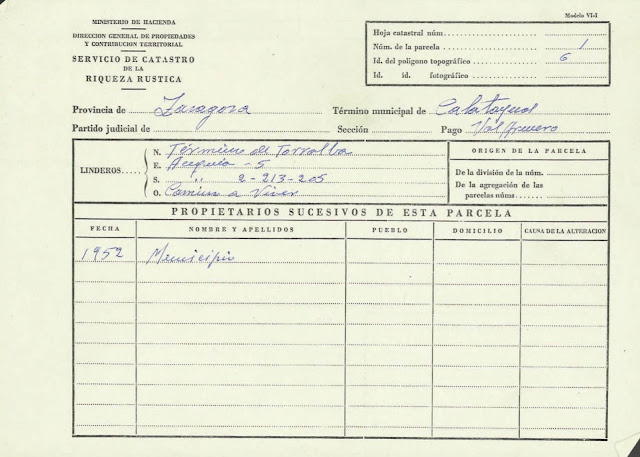 Modelo VI-I
MINISTERIO DE HACIENDA
DIRECCION GENERAL DE PROPIEDADES
Y CONTRIBUCION TERRITORIAL
SERVICIO DE CATASTRO
DE LA
RIQUEZA RUSTICA
Hoja catastral núm.
Núm. de la parcela 1
Id. del polígono topográfico 6
Id. id. fotográfico
Provincia de Zaragoza Término municipal de Calatayud
Partido judicial de Sección Pago
LINDEROS
N. Término de Torralba
E. Acequia - 5
S. " 2-213-205
O. Camino a Viver
ORIGEN DE LA PARCELA
De la división de la núm.
De la agregación de las
parcelas núms.
PROPIETARIOS SUCESIVOS DE ESTA PARCELA
FECHA NOMBRE Y APELLIDOS PUEBLO DOMICILIO CAUSA DE LA ALTERACION
1952 Municipio